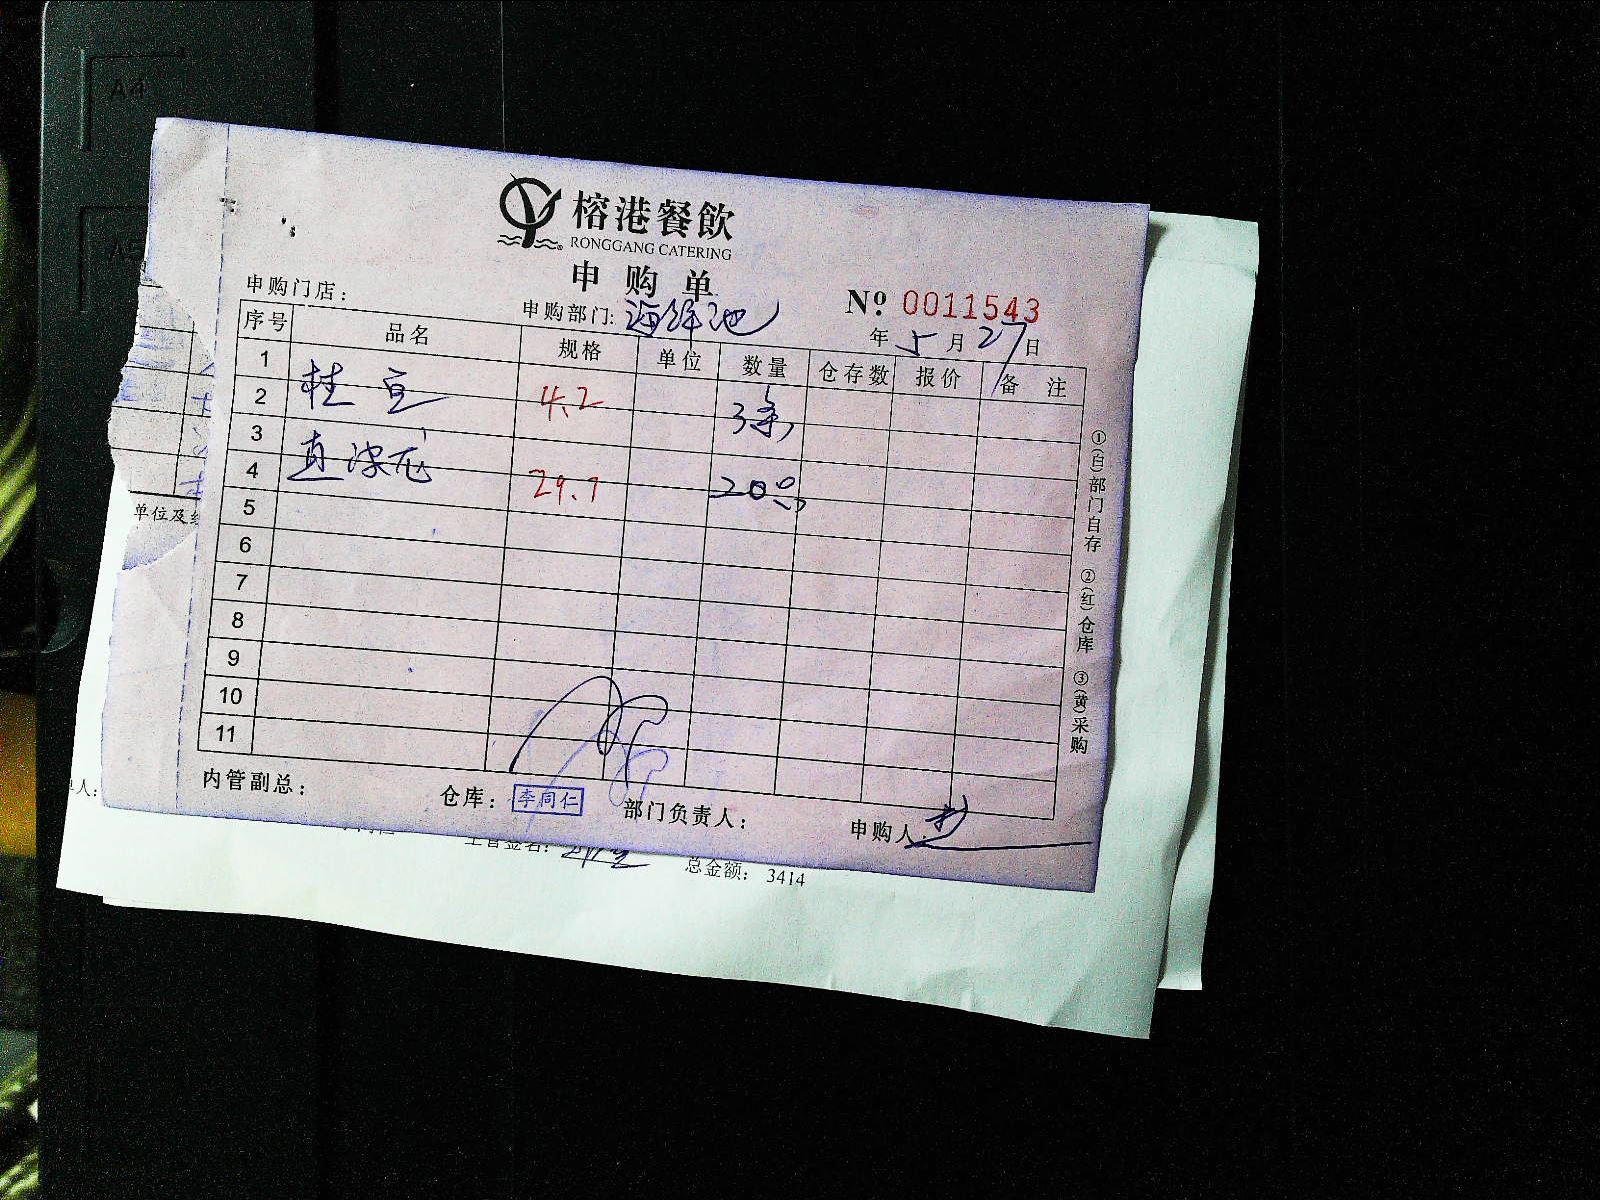 A4
A5
榕港餐飲
RONGGANG CATERING
申购单
申购门店：
申购部门: 海鲜池
№ 0011543
年 5 月 27 日
序号 品名 规格 单位 数量 仓存数 报价 备注
1
2 桂 4.2 3条
3
4 29.7 20只
5
6
7
8
9
10
11
①(白)部门自存 ②(红)仓库 ③(黄)采购
内管副总： 仓库：李同仁 部门负责人： 申购人：
单位及
人：
主管签名：
总金额： 3414